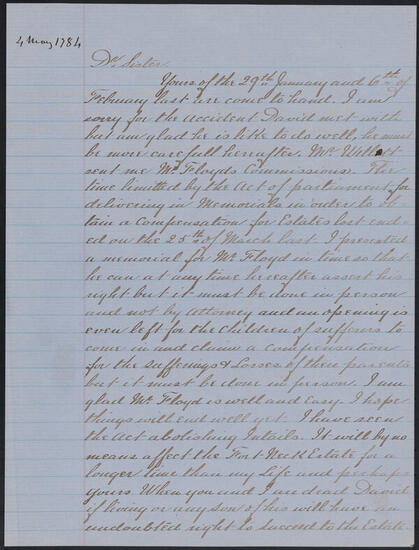 4 May 1784
Dr. Sister
Yours of the 29th January and 6th of
February last are come to hand. I am
sorry for the accident David met with
but am glad he is like to do well, he must
be more carefull hereafter. Mr.
sent me Mr. Floyds Commissions. The
time limitted by the Act of parliament for
delivering in Memorials in order to ob
tain a Compensation for Estates lost end
ed on the 25th of March last. I presented
a memorial for Mr. Floyd in time so that
he can at any time hereafter assert his
right but it must be done in person
and not by Attorney and an opening is
even left for the Children of sufferers to
come in and claim a Compensation
for the sufferings & Losses of their parents
but it must be done in person. I am
glad Mr. Floyd is well and Easy. I hope
things will end well yet. I have seen
the Act abolishing Intails. It will by no
means affect the Fort Neck Estate for a
longer time than my Life and perhaps
yours. When you and I are dead David
if living or any son of his will have an
undoubted right to succeed to the Estate